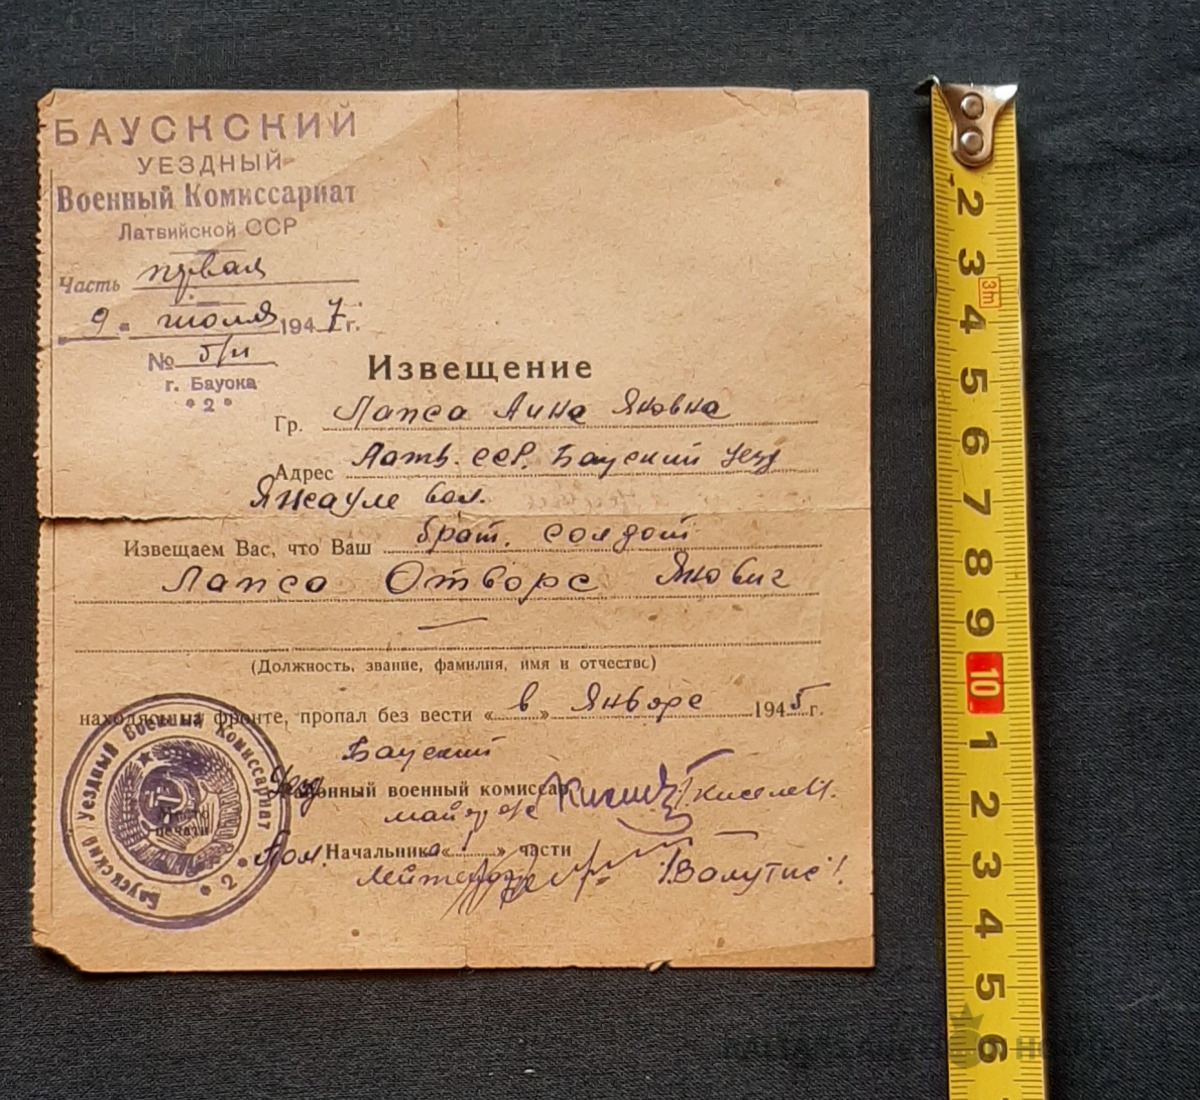 БАУСКСКИЙ
УЕЗДНЫЙ
Военный Комиссариат
Латвийской ССР
Часть первая
9 " июля 1947 г.
№ б/н
г. Бауска
* 2 *
Извещение
Гр. Лапса Анна Яковна
Адрес Латв. ССР. Бауский уезд
Яжсауле вол.
Извещаем Вас, что Ваш брат. солдат
Лапса Отворс Якович
(Должность, звание, фамилия, имя и отчество)
находясь на фронте, пропал без вести « в » Январе 1945 г.
Бауский
Уезд
военный комиссар
майор Киселев
Пом. Начальника « 1 » части
Лейтенант Волутис
Баускский Уездный Военный Комиссариат * 2 *
печати
2
3
3m
4
5
6
7
8
9
10
1
2
3
4
5
6